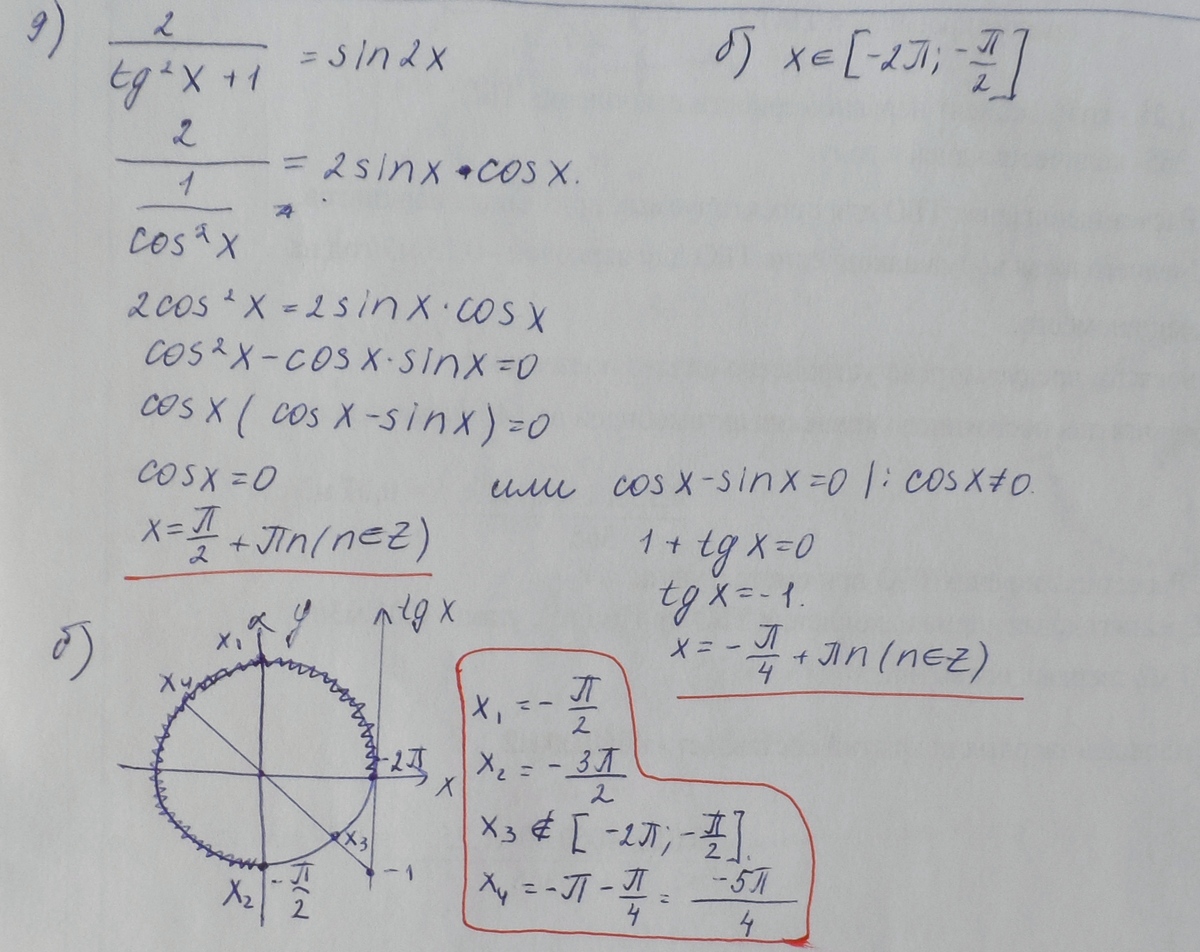 9) 2/(tg²x + 1) = sin2x
б) x ∈ [-2π; -π/2]
2/(1/cos²x) = 2sinx · cosx.
2cos²x = 2sinx · cosx
cos²x - cosx · sinx = 0
cosx (cosx - sinx) = 0
cosx = 0 или cosx - sinx = 0 |: cosx ≠ 0.
x = π/2 + πn (n ∈ Z)
1 + tgx = 0
tgx = -1.
x = -π/4 + πn (n ∈ Z)
б)
y
tgx
x₁
x₄
-2π
x
x₃
-1
x₂
-π/2
x₁ = -π/2
x₂ = -3π/2
x₃ ∉ [-2π; -π/2].
x₄ = -π - π/4 = -5π/4